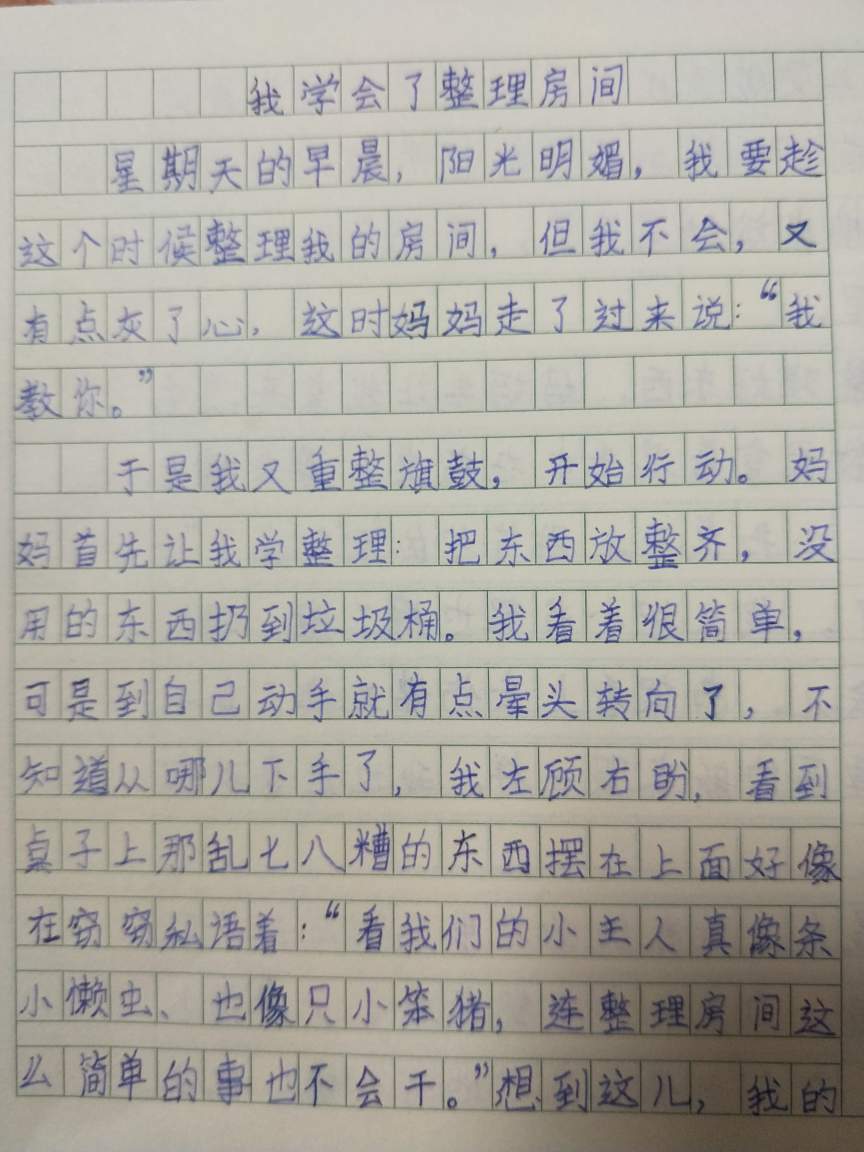 我学会了整理房间
星期天的早晨，阳光明媚，我要趁
这个时候整理我的房间，但我不会，又
有点灰了心，这时妈妈走了过来说：“我
教你。”
于是我又重整旗鼓，开始行动。妈
妈首先让我学整理：把东西放整齐，没
用的东西扔到垃圾桶。我看着很简单，
可是到自己动手就有点晕头转向了，不
知道从哪儿下手了，我左顾右盼，看到
桌子上那乱七八糟的东西摆在上面好像
在窃窃私语着：“看我们的小主人真像条
小懒虫、也像只小笨猪，连整理房间这
么简单的事也不会干。”想到这儿，我的